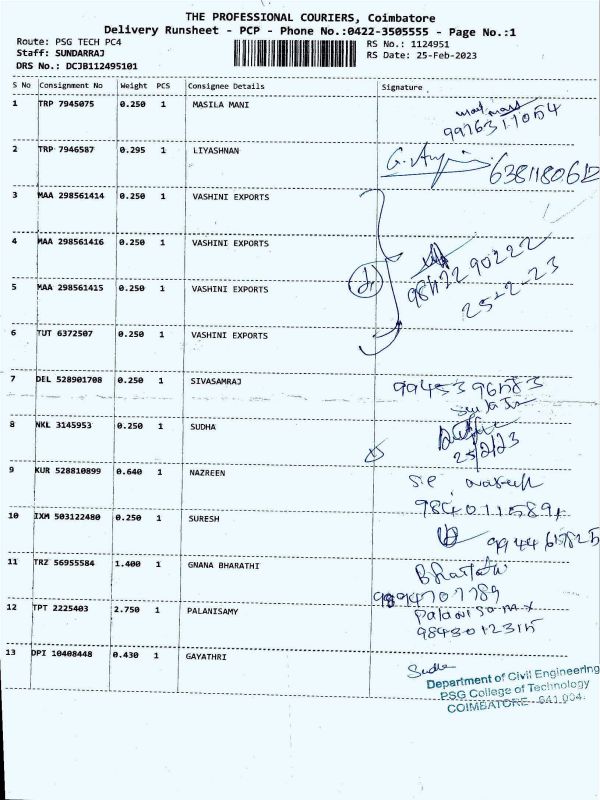 THE PROFESSIONAL COURIERS, Coimbatore
Delivery Runsheet - PCP - Phone No.:0422-3505555 - Page No.:1
Route: PSG TECH PC4
Staff: SUNDARRAJ
DRS No.: DCJB112495101
RS No.: 1124951
RS Date: 25-Feb-2023
S No Consignment No Weight PCS Consignee Details Signature
1 TRP 7945075 0.250 1 MASILA MANI
2 TRP 7946587 0.295 1 LIYASHNAN
6381180612
3 MAA 298561414 0.250 1 VASHINI EXPORTS
4 MAA 298561416 0.250 1 VASHINI EXPORTS
90222
5 MAA 298561415 0.250 1 VASHINI EXPORTS
25-2-23
6 TUT 6372507 0.250 1 VASHINI EXPORTS
7 DEL 528901708 0.250 1 SIVASAMRAJ
8 NKL 3145953 0.250 1 SUDHA
25/2/23
9 KUR 528810899 0.640 1 NAZREEN
10 IXM 503122480 0.250 1 SURESH
11 TRZ 56955584 1.400 1 GNANA BHARATHI
Bharathi
12 TPT 2225403 2.750 1 PALANISAMY
13 DPI 10408448 0.430 1 GAYATHRI
Sudha
Department of Civil Engineering
PSG College of Technology
COIMBATORE - 641 004.